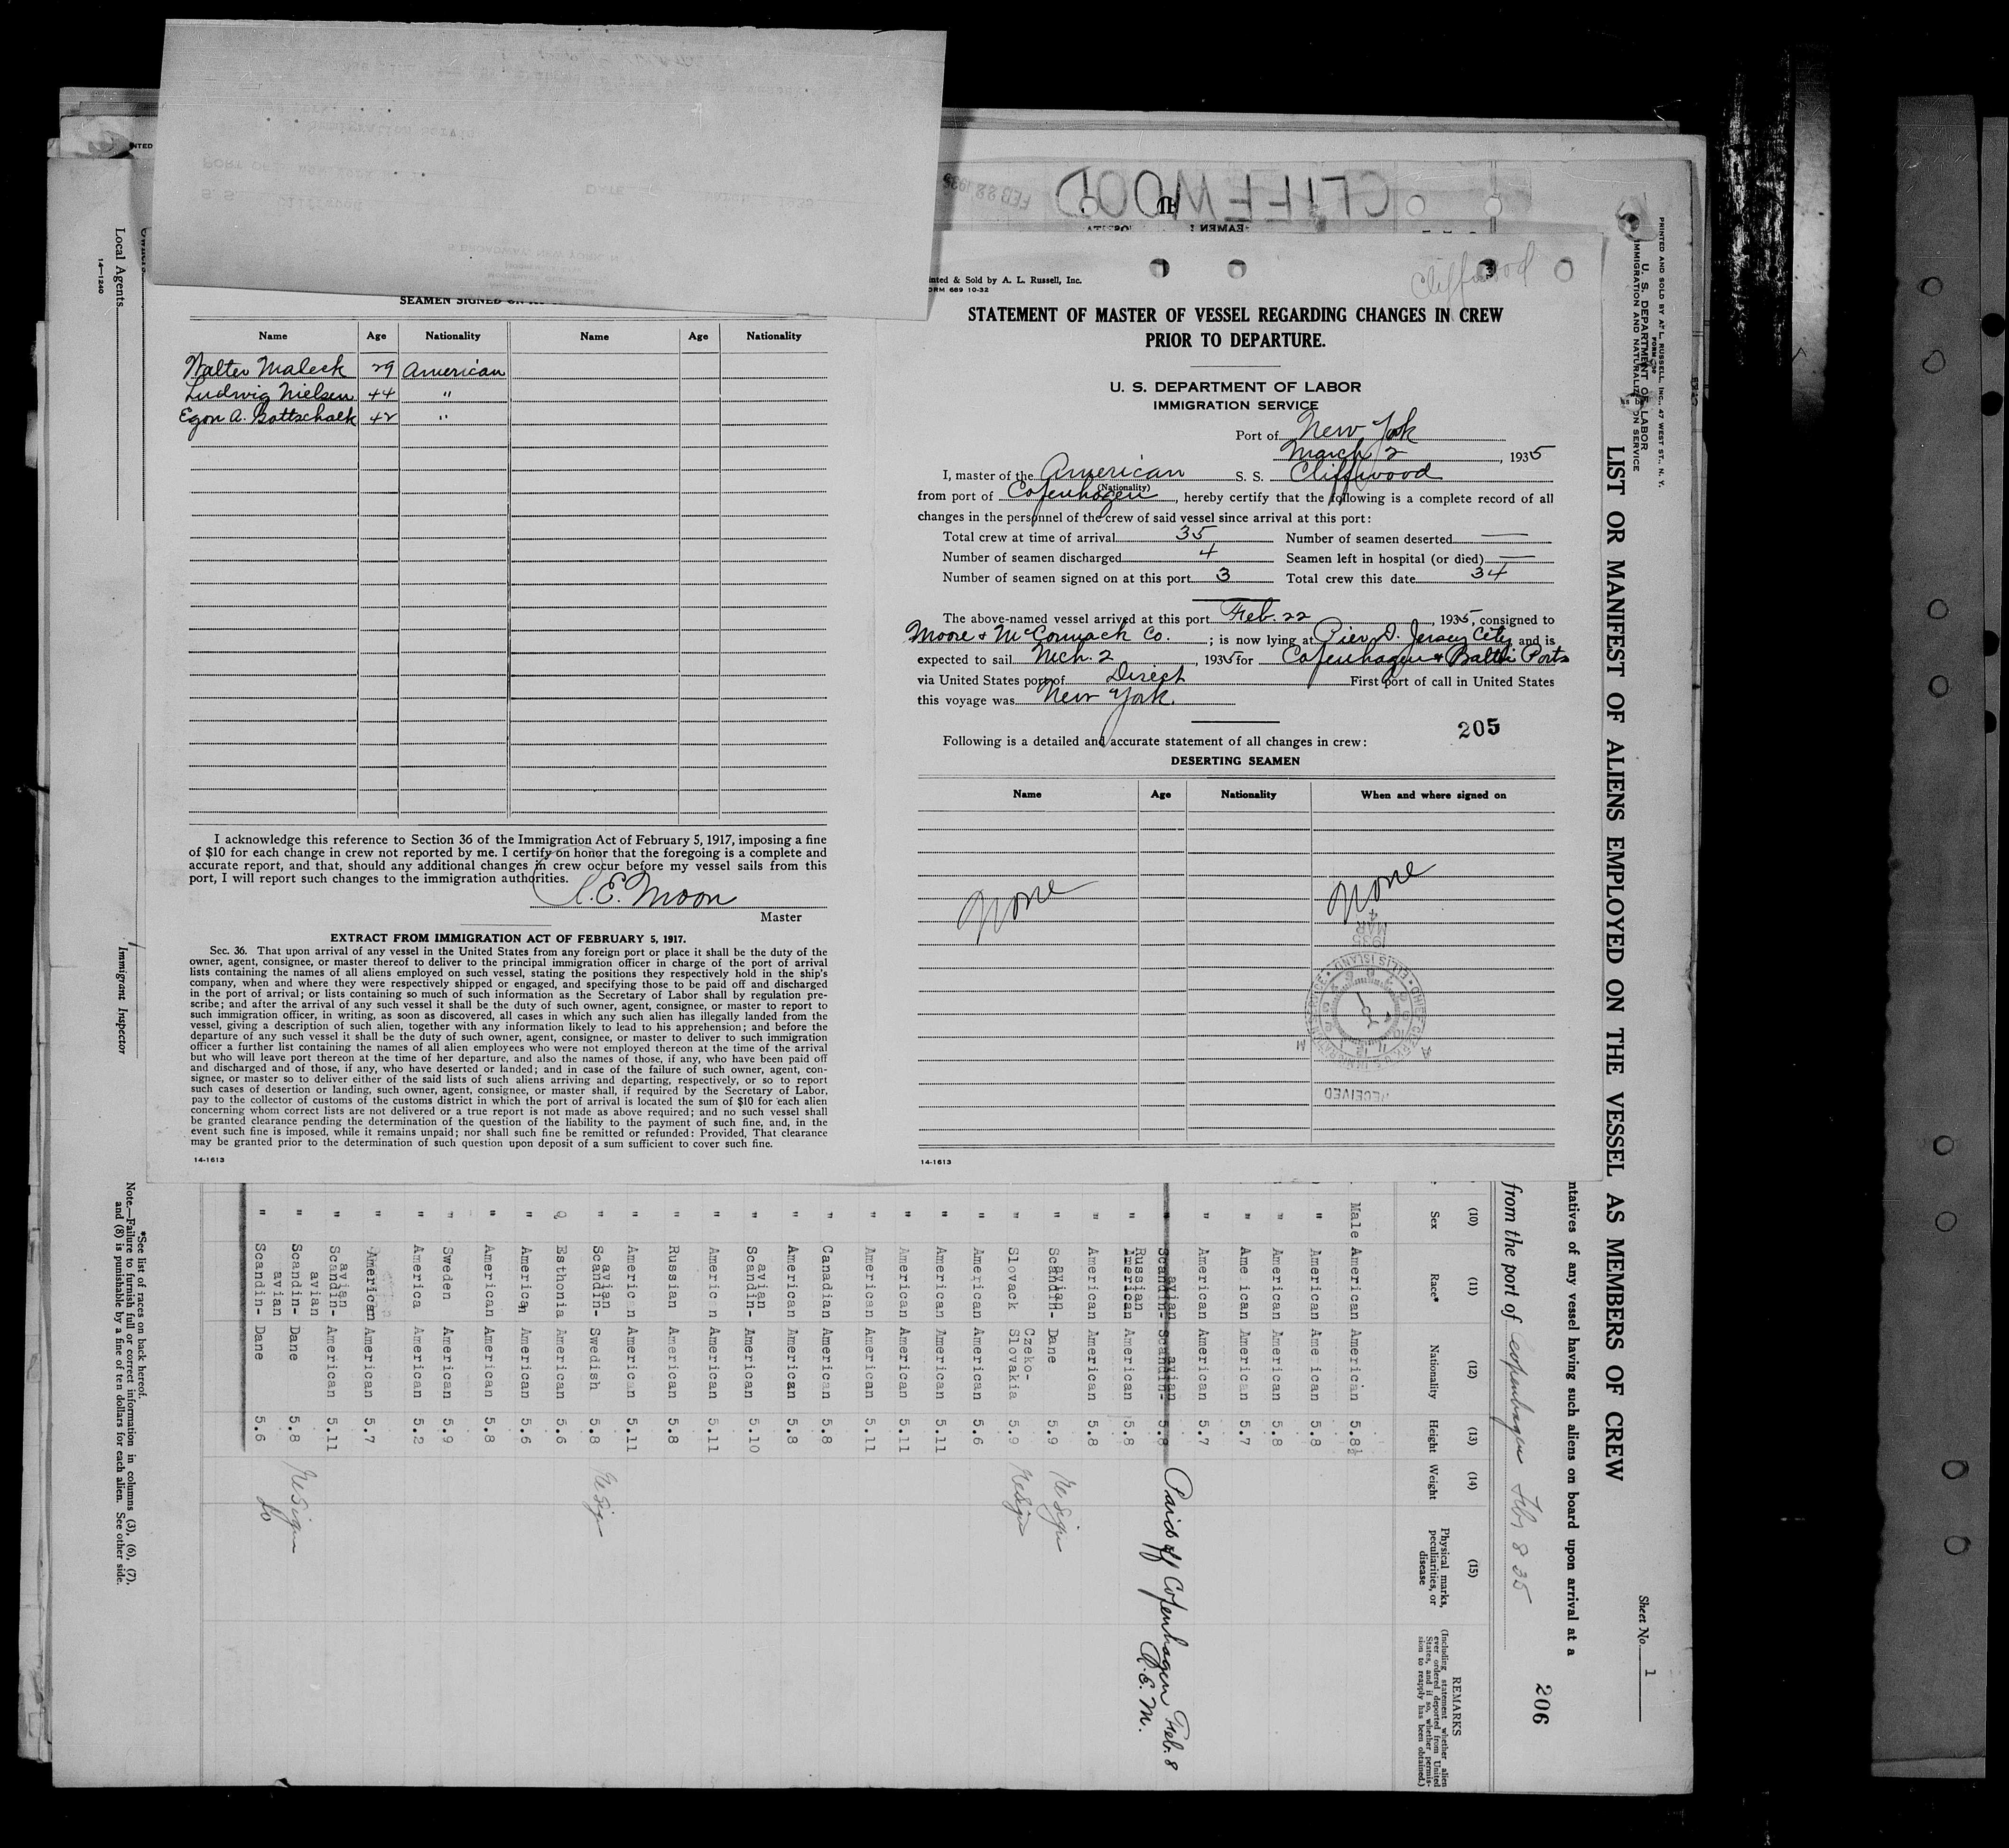 SEAMEN SIGNED ON
Name Age Nationality Name Age Nationality
Walter Maleck 29 American
Ludwig Nielsen 44 "
Egon A. Gottschalk 42 "
I acknowledge this reference to Section 36 of the Immigration Act of February 5, 1917, imposing a fine
of $10 for each change in crew not reported by me. I certify on honor that the foregoing is a complete and
accurate report, and that, should any additional changes in crew occur before my vessel sails from this
port, I will report such changes to the immigration authorities.
E. Moon
Master
EXTRACT FROM IMMIGRATION ACT OF FEBRUARY 5, 1917.
Sec. 36. That upon arrival of any vessel in the United States from any foreign port or place it shall be the duty of the
owner, agent, consignee, or master thereof to deliver to the principal immigration officer in charge of the port of arrival
lists containing the names of all aliens employed on such vessel, stating the positions they respectively hold in the ship's
company, when and where they were respectively shipped or engaged, and specifying those to be paid off and discharged
in the port of arrival; or lists containing so much of such information as the Secretary of Labor shall by regulation pre-
scribe; and after the arrival of any such vessel it shall be the duty of such owner, agent, consignee, or master to report to
such immigration officer, in writing, as soon as discovered, all cases in which any such alien has illegally landed from the
vessel, giving a description of such alien, together with any information likely to lead to his apprehension; and before the
departure of any such vessel it shall be the duty of such owner, agent, consignee, or master to deliver to such immigration
officer a further list containing the names of all alien employees who were not employed thereon at the time of the arrival
but who will leave port thereon at the time of her departure, and also the names of those, if any, who have been paid off
and discharged and of those, if any, who have deserted or landed; and in case of the failure of such owner, agent, con-
signee, or master so to deliver either of the said lists of such aliens arriving and departing, respectively, or so to report
such cases of desertion or landing, such owner, agent, consignee, or master shall, if required by the Secretary of Labor,
pay to the collector of customs of the customs district in which the port of arrival is located the sum of $10 for each alien
concerning whom correct lists are not delivered or a true report is not made as above required; and no such vessel shall
be granted clearance pending the determination of the question of the liability to the payment of such fine, and, in the
event such fine is imposed, while it remains unpaid; nor shall such fine be remitted or refunded: Provided, That clearance
may be granted prior to the determination of such question upon deposit of a sum sufficient to cover such fine.
14-1613
CLIFFWOOD
FEB 22 1935
Cliffwood
Printed & Sold by A. L. Russell, Inc.
FORM 689 10-32
STATEMENT OF MASTER OF VESSEL REGARDING CHANGES IN CREW
PRIOR TO DEPARTURE.
U. S. DEPARTMENT OF LABOR
IMMIGRATION SERVICE
Port of New York
March 2, 1935
I, master of the American S. S. Cliffwood
(Nationality)
from port of Copenhagen, hereby certify that the following is a complete record of all
changes in the personnel of the crew of said vessel since arrival at this port:
Total crew at time of arrival 35 Number of seamen deserted —
Number of seamen discharged 4 Seamen left in hospital (or died) —
Number of seamen signed on at this port 3 Total crew this date 34
The above-named vessel arrived at this port Feb. 22, 1935, consigned to
Moore & McCormack Co.; is now lying at Pier D. Jersey City and is
expected to sail Mch. 2, 1935 for Copenhagen & Baltic Ports
via United States port of Direct First port of call in United States
this voyage was New York.
205
Following is a detailed and accurate statement of all changes in crew:
DESERTING SEAMEN
Name Age Nationality When and where signed on
None None
1935
MAR
4
RECEIVED
14-1613
PRINTED AND SOLD BY A. L. RUSSELL, INC., 47 WEST ST., N. Y.
U. S. DEPARTMENT OF LABOR
IMMIGRATION AND NATURALIZATION SERVICE
Sheet No. 1
LIST OR MANIFEST OF ALIENS EMPLOYED ON THE VESSEL AS MEMBERS OF CREW
ntatives of any vessel having such aliens on board upon arrival at a
206
from the port of Copenhagen Feb 8 35
(10) (11) (12) (13) (14) (15)
Sex Race* Nationality Height Weight Physical marks, peculiarities, or disease
REMARKS
(Including statement whether alien ever ordered deported from United States, and if so, whether permission to reapply has been obtained.)
Male American American 5.8½
" American Ame ican 5.8
" American American 5.8
" Ame ican American 5.7
" American American 5.7
" Scandin-avian Scandin-avian 5.8 Paid off Copenhagen Feb. 8
C. E. M.
" American Russian American 5.8
" American American 5.8
" Scandin-avian Dane 5.9 Resign
" Slovack Czeko-Slovakia 5.9 Resign
" American American 5.6
" American American 5.11
" American American 5.11
" American American 5.11
" Canadian American 5.8
" American American 5.8
" Scandin-avian American 5.10
" Americ n American 5.11
" Russian American 5.8
" American American 5.11
" Scandin-avian Swedish 5.8 Resign
" Esthonia American 5.6
" American American 5.6
" American American 5.8
" Sweden American 5.9
" America American 5.2
" American American 5.7
" Scandin-avian American 5.11
" Scandin-avian Dane 5.8 Resign
" Scandin-avian Dane 5.6 do
*See list of races on back hereof.
Note.—Failure to furnish full or correct information in columns (3), (6), (7),
and (8) is punishable by a fine of ten dollars for each alien. See other side.
Local Agents
Immigrant Inspector
14—1240